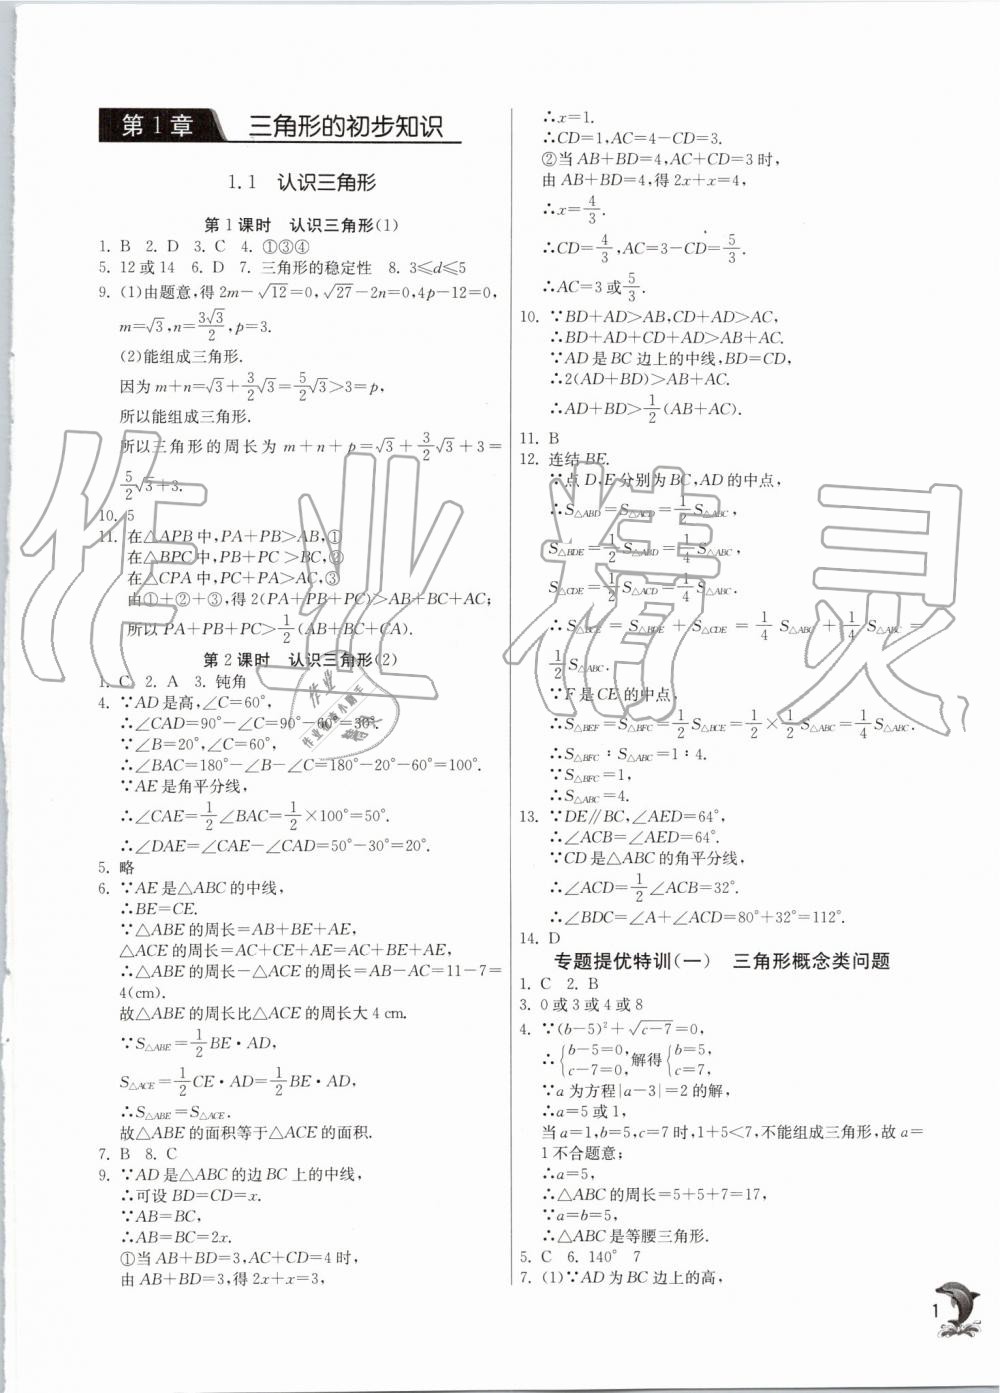 第1章 三角形的初步知识
1.1 认识三角形
第1课时 认识三角形(1)
1. B 2. D 3. C 4. ①③④
5. 12或14 6. D 7. 三角形的稳定性 8. 3≤d≤5
9. (1)由题意,得2m-√12=0,√27-2n=0,4p-12=0,
m=√3,n=3√3/2,p=3.
(2)能组成三角形.
因为m+n=√3+3/2√3=5/2√3>3=p,
所以能组成三角形.
所以三角形的周长为m+n+p=√3+3/2√3+3=
5/2√3+3.
10. 5
11. 在△APB中,PA+PB>AB,①
在△BPC中,PB+PC>BC,②
在△CPA中,PC+PA>AC,③
由①+②+③,得2(PA+PB+PC)>AB+BC+AC;
所以PA+PB+PC>1/2(AB+BC+CA).
第2课时 认识三角形(2)
1. C 2. A 3. 钝角
4. ∵AD是高,∠C=60°,
∴∠CAD=90°-∠C=90°-60°=30°.
∵∠B=20°,∠C=60°,
∴∠BAC=180°-∠B-∠C=180°-20°-60°=100°.
∵AE是角平分线,
∴∠CAE=1/2∠BAC=1/2×100°=50°.
∴∠DAE=∠CAE-∠CAD=50°-30°=20°.
5. 略
6. ∵AE是△ABC的中线,
∴BE=CE.
∵△ABE的周长=AB+BE+AE,
△ACE的周长=AC+CE+AE=AC+BE+AE,
∴△ABE的周长-△ACE的周长=AB-AC=11-7=
4(cm).
故△ABE的周长比△ACE的周长大4 cm.
∵S△ABE=1/2BE·AD,
S△ACE=1/2CE·AD=1/2BE·AD,
∴S△ABE=S△ACE.
故△ABE的面积等于△ACE的面积.
7. B 8. C
9. ∵AD是△ABC的边BC上的中线,
∴可设BD=CD=x.
∵AB=BC,
∴AB=BC=2x.
①当AB+BD=3,AC+CD=4时,
由AB+BD=3,得2x+x=3,
∴x=1.
∴CD=1,AC=4-CD=3.
②当AB+BD=4,AC+CD=3时,
由AB+BD=4,得2x+x=4,
∴x=4/3.
∴CD=4/3,AC=3-CD=5/3.
∴AC=3或5/3.
10. ∵BD+AD>AB,CD+AD>AC,
∴BD+AD+CD+AD>AB+AC.
∵AD是BC边上的中线,BD=CD,
∴2(AD+BD)>AB+AC.
∴AD+BD>1/2(AB+AC).
11. B
12. 连结BE.
∵点D,E分别为BC,AD的中点,
∴S△ABD=S△ACD=1/2S△ABC,
S△BDE=1/2S△ABD=1/4S△ABC,
S△CDE=1/2S△ACD=1/4S△ABC,
∴S△BCE=S△BDE+S△CDE=1/4S△ABC+1/4S△ABC=
1/2S△ABC.
∵F是CE的中点,
∴S△BEF=S△BFC=1/2S△BCE=1/2×1/2S△ABC=1/4S△ABC.
∴S△BFC∶S△ABC=1∶4.
∵S△BFC=1,
∴S△ABC=4.
13. ∵DE∥BC,∠AED=64°,
∴∠ACB=∠AED=64°.
∵CD是△ABC的角平分线,
∴∠ACD=1/2∠ACB=32°.
∴∠BDC=∠A+∠ACD=80°+32°=112°.
14. D
专题提优特训(一) 三角形概念类问题
1. C 2. B
3. 0或3或4或8
4. ∵(b-5)²+√(c-7)=0,
∴{b-5=0, c-7=0, 解得{b=5, c=7,
∵a为方程|a-3|=2的解,
∴a=5或1,
当a=1,b=5,c=7时,1+5<7,不能组成三角形,故a=
1不合题意;
∴a=5,
∴△ABC的周长=5+5+7=17,
∵a=b=5,
∴△ABC是等腰三角形.
5. C 6. 140° 7
7. (1)∵AD为BC边上的高,
1
作业精灵